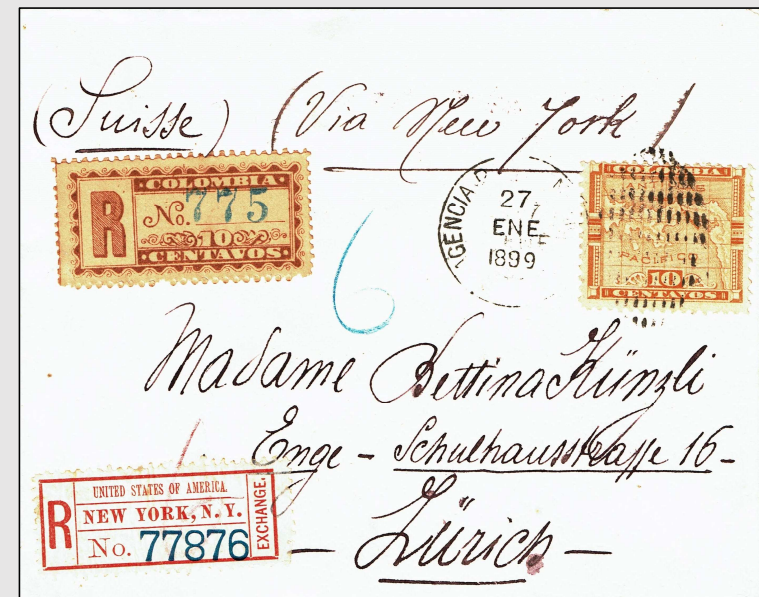 (Suisse) (Via New York)
COLOMBIA
R No. 775
10
CENTAVOS
AGENCIA
27
ENE
1899
COLOMBIA
PACIFICO
10
CENTAVOS
6
Madame Bettina Künzli
Enge - Schulhausstrasse 16 -
- Zürich -
UNITED STATES OF AMERICA.
R NEW YORK, N. Y.
No. 77876
EXCHANGE.